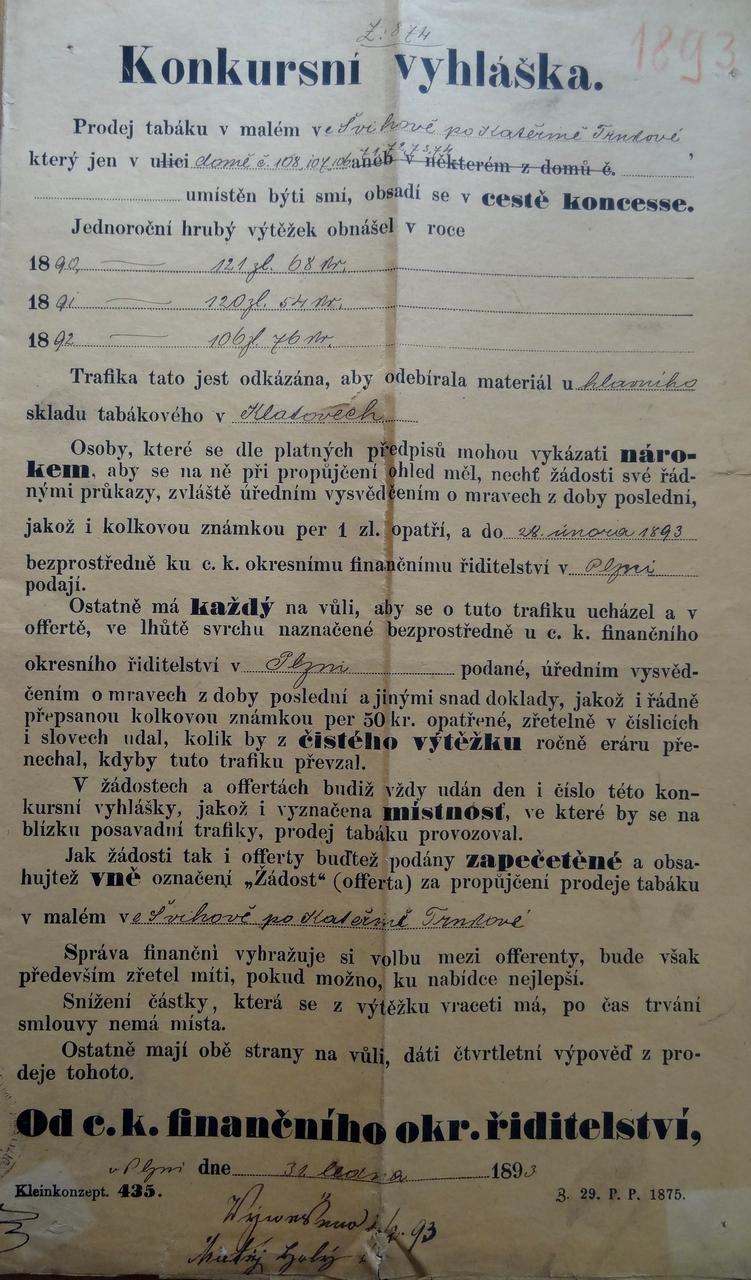 Z: 874
1893
Konkursní vyhláška.
Prodej tabáku v malém ve Švihově po Kateřině Trnkové,
který jen v ulici domě č. 108, 107, 106 aneb v některém z domů č.
umístěn býti smí, obsadí se v cestě koncesse.
Jednoroční hrubý výtěžek obnášel v roce
1890 121 zl. 68 kr.
1891 120 zl. 54 kr.
1892 106 zl 76 kr.
Trafika tato jest odkázána, aby odebírala materiál u hlavního
skladu tabákového v Klatovech
Osoby, které se dle platných předpisů mohou vykázati náro-
kem, aby se na ně při propůjčení ohled měl, nechť žádosti své řád-
nými průkazy, zvláště úředním vysvědčením o mravech z doby poslední,
jakož i kolkovou známkou per 1 zl. opatří, a do 28. února 1893
bezprostředně ku c. k. okresnímu finančnímu řiditelství v Plzni
podají.
Ostatně má každý na vůli, aby se o tuto trafiku ucházel a v
offertě, ve lhůtě svrchu naznačené bezprostředně u c. k. finančního
okresního řiditelství v Plzni podané, úředním vysvěd-
čením o mravech z doby poslední a jinými snad doklady, jakož i řádně
přepsanou kolkovou známkou per 50 kr. opatřené, zřetelně v číslicích
i slovech udal, kolik by z čistého výtěžku ročně eráru pře-
nechal, kdyby tuto trafiku převzal.
V žádostech a offertách budiž vždy udán den i číslo této kon-
kursní vyhlášky, jakož i vyznačena místnosť, ve které by se na
blízku posavadní trafiky, prodej tabáku provozoval.
Jak žádosti tak i offerty buďtež podány zapečetěné a obsa-
hujtež vně označení „Žádost“ (offerta) za propůjčení prodeje tabáku
v malém ve Švihově po Kateřině Trnkové
Správa finanční vyhražuje si volbu mezi offerenty, bude však
především zřetel míti, pokud možno, ku nabídce nejlepší.
Snížení částky, která se z výtěžku vraceti má, po čas trvání
smlouvy nemá místa.
Ostatně mají obě strany na vůli, dáti čtvrtletní výpověď z pro-
deje tohoto.
Od c. k. finančního okr. řiditelství,
v Plzni dne 31 ledna 1893
Kleinkonzept. 435. Z. 29. P. P. 1875.
Vyvěšeno 93
Matěj Holý